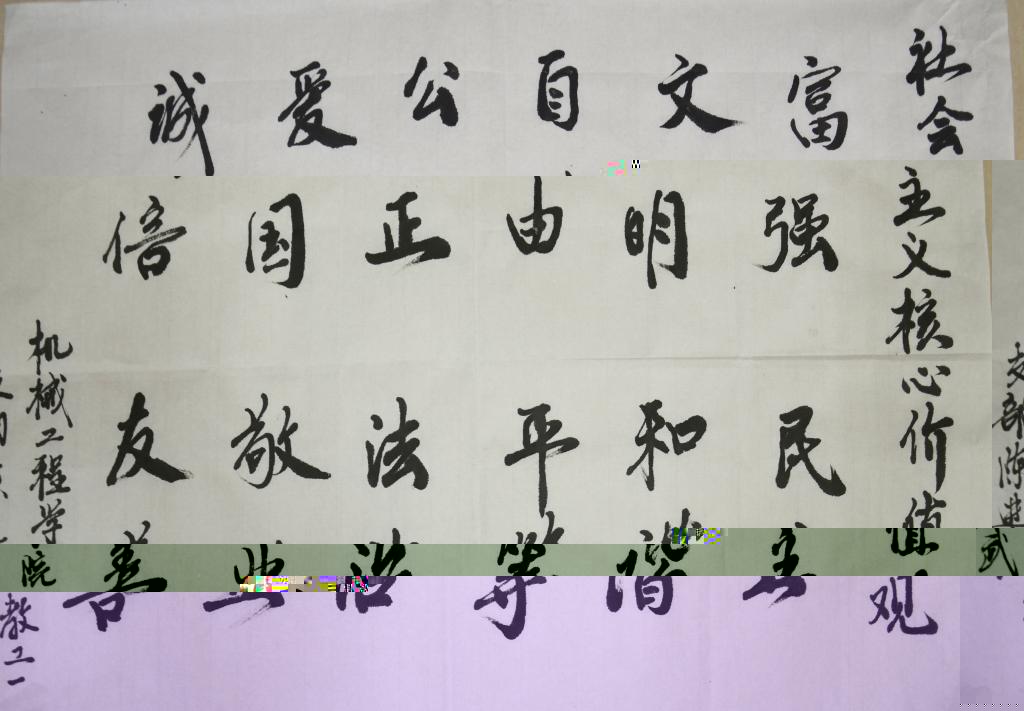 社会主义核心价值观
富强民主
文明和谐
自由平等
公正法治
爱国敬业
誠信友善
机械工程学院教工一
支部陈典武